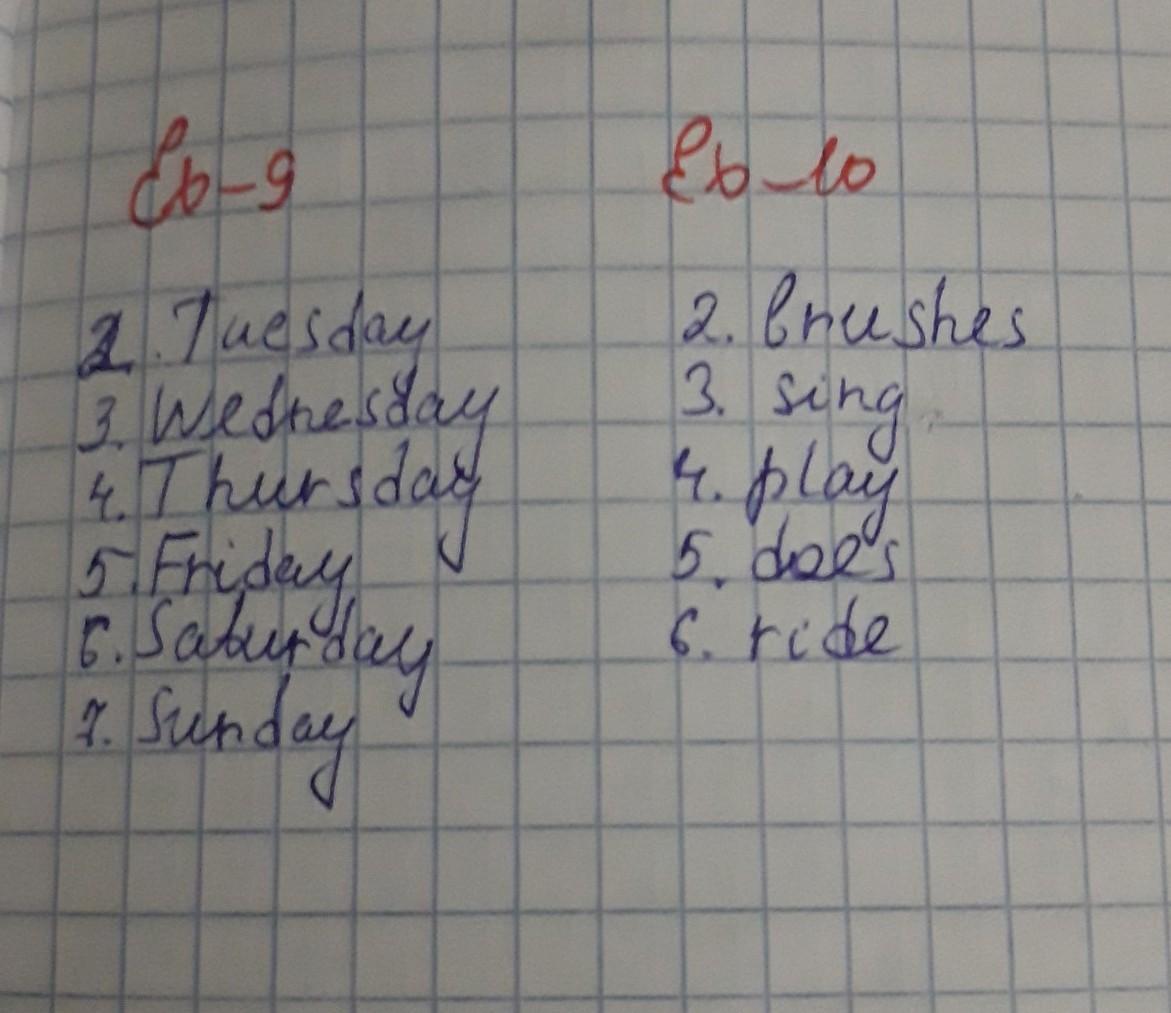 Eb-9
2. Tuesday
3. Wednesday
4. Thursday
5. Friday
6. Saturday
7. Sunday
Eb-10
2. brushes
3. sing
4. play
5. does
6. ride